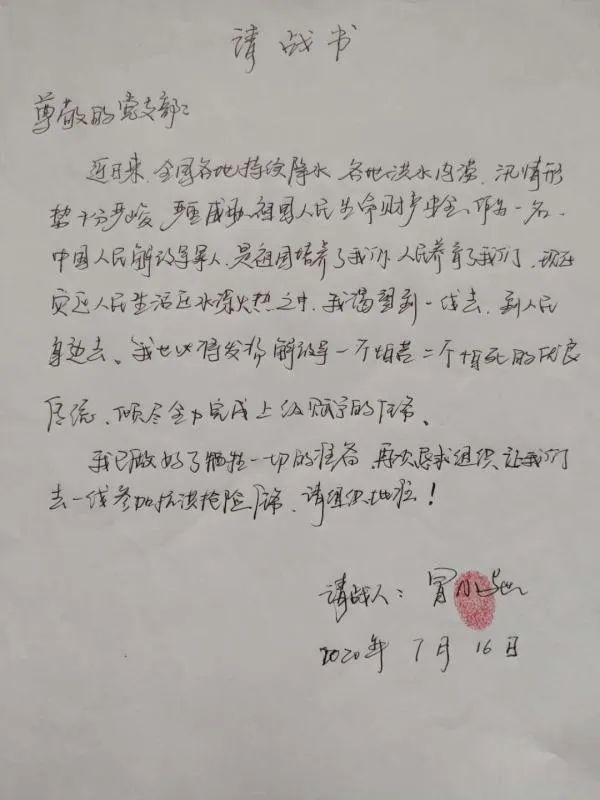 请战书
尊敬的党支部:
近日来,全国各地持续降水,各地洪水内涝,汛情形
势十分严峻,严重威胁祖国人民生命财产安全。作为一名
中国人民解放军军人,是祖国培养了我们,人民养育了我们,现在
灾区人民生活在水深火热之中,我渴望到一线去,到人民
身边去。我也必将发扬解放军一不怕苦二不怕死的优良
传统,倾尽全力完成上级赋予的任务。
我已做好了牺牲一切的准备,再次恳求组织让我们
去一线参加抗洪抢险任务,请组织批准!
请战人:
2020年 7月 16日